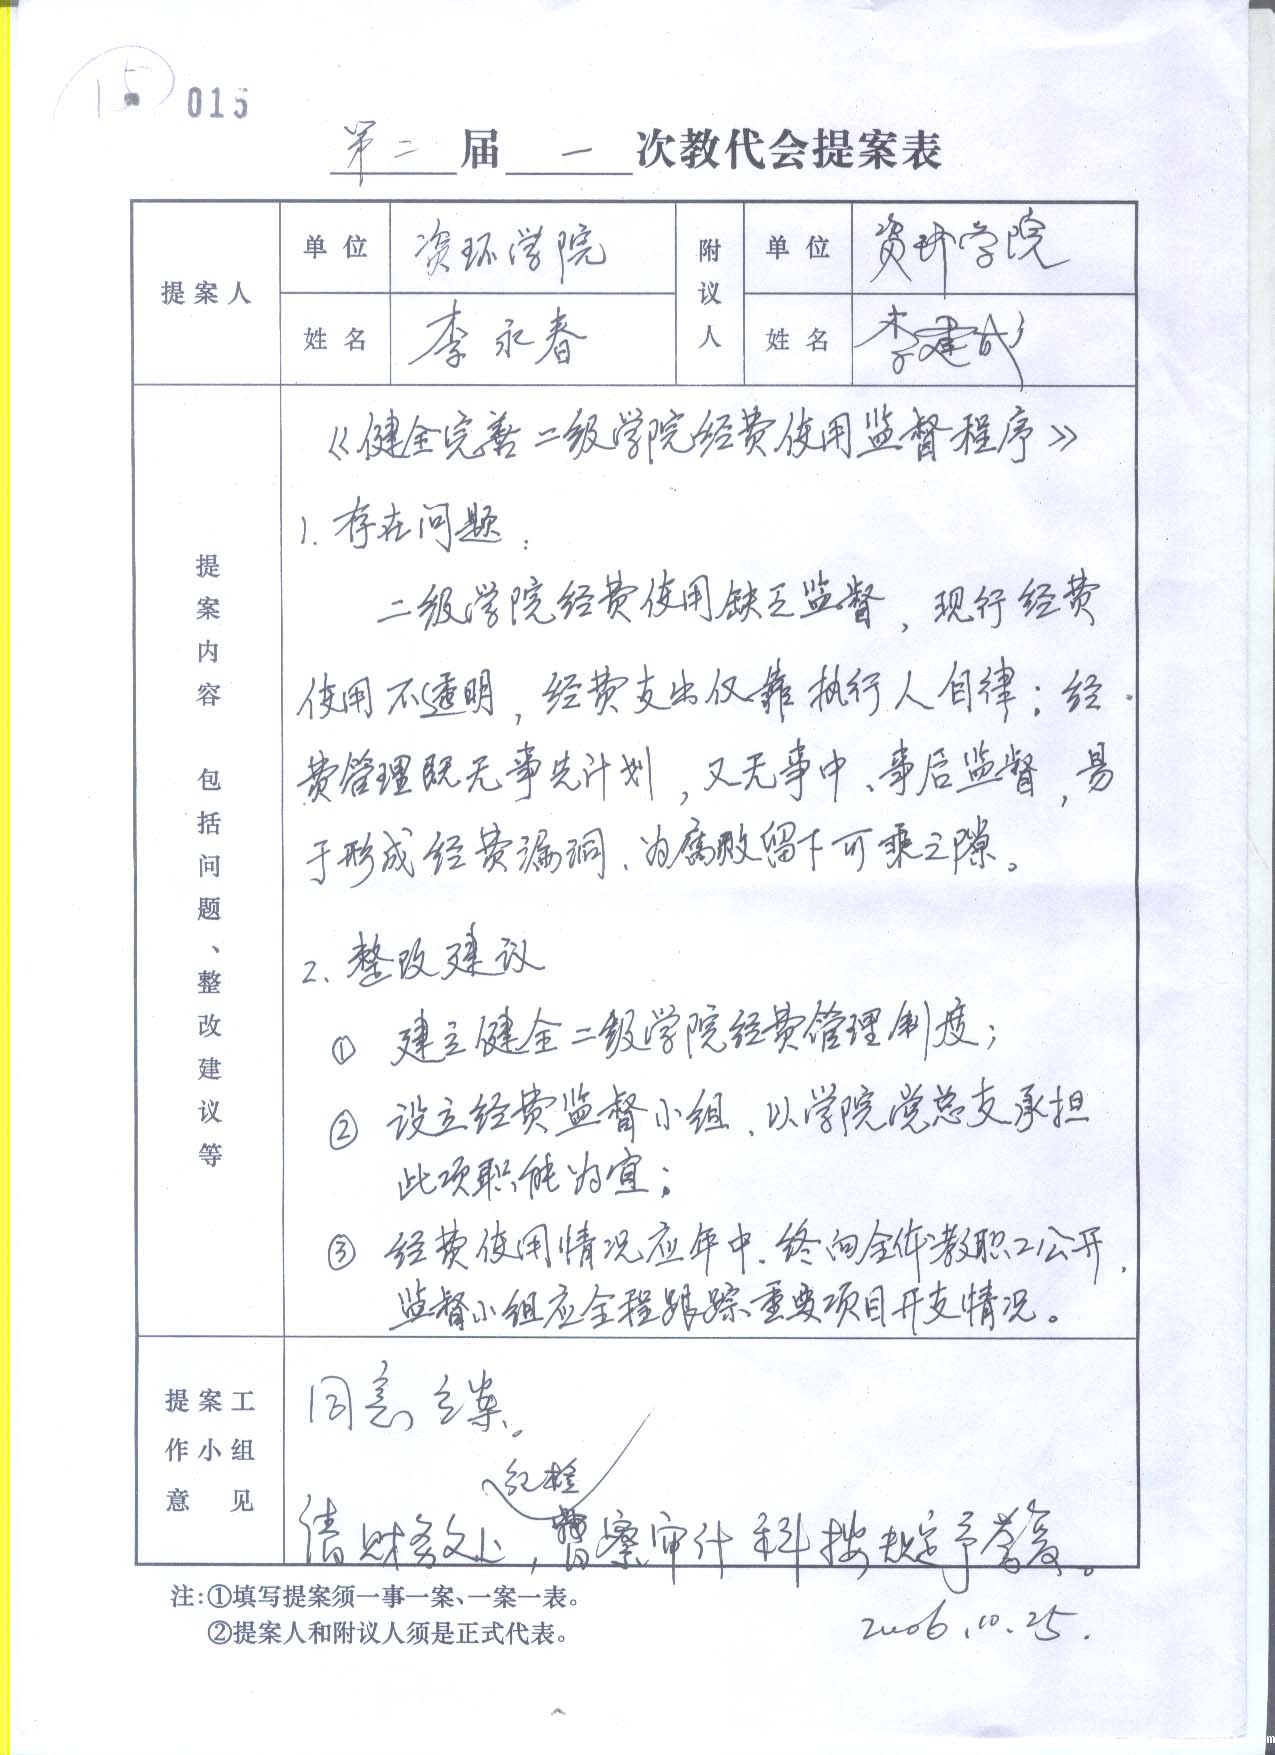 15 015
第二届 一 次教代会提案表
提案人 单位 资环学院 附议人 单位 资环学院
姓名 李永春 姓名 李建成
提案内容 包括问题、整改建议等
《健全完善二级学院经费使用监督程序》
1. 存在问题:
二级学院经费使用缺乏监督,现行经费
使用不透明,经费支出仅靠执行人自律;经
费管理既无事先计划,又无事中、事后监督,易
于形成经费漏洞、为腐败留下可乘之隙。
2. 整改建议
① 建立健全二级学院经费管理制度;
② 设立经费监督小组、以学院党总支承担
此项职能为宜;
③ 经费使用情况应年中、终向全体教职工公开,
监督小组应全程跟踪重要项目开支情况。
提案工
作小组
意见
同意立案。
纪检
请财务处,察审计科按规定予答复。
注:①填写提案须一事一案、一案一表。
②提案人和附议人须是正式代表。
2006.10.25.